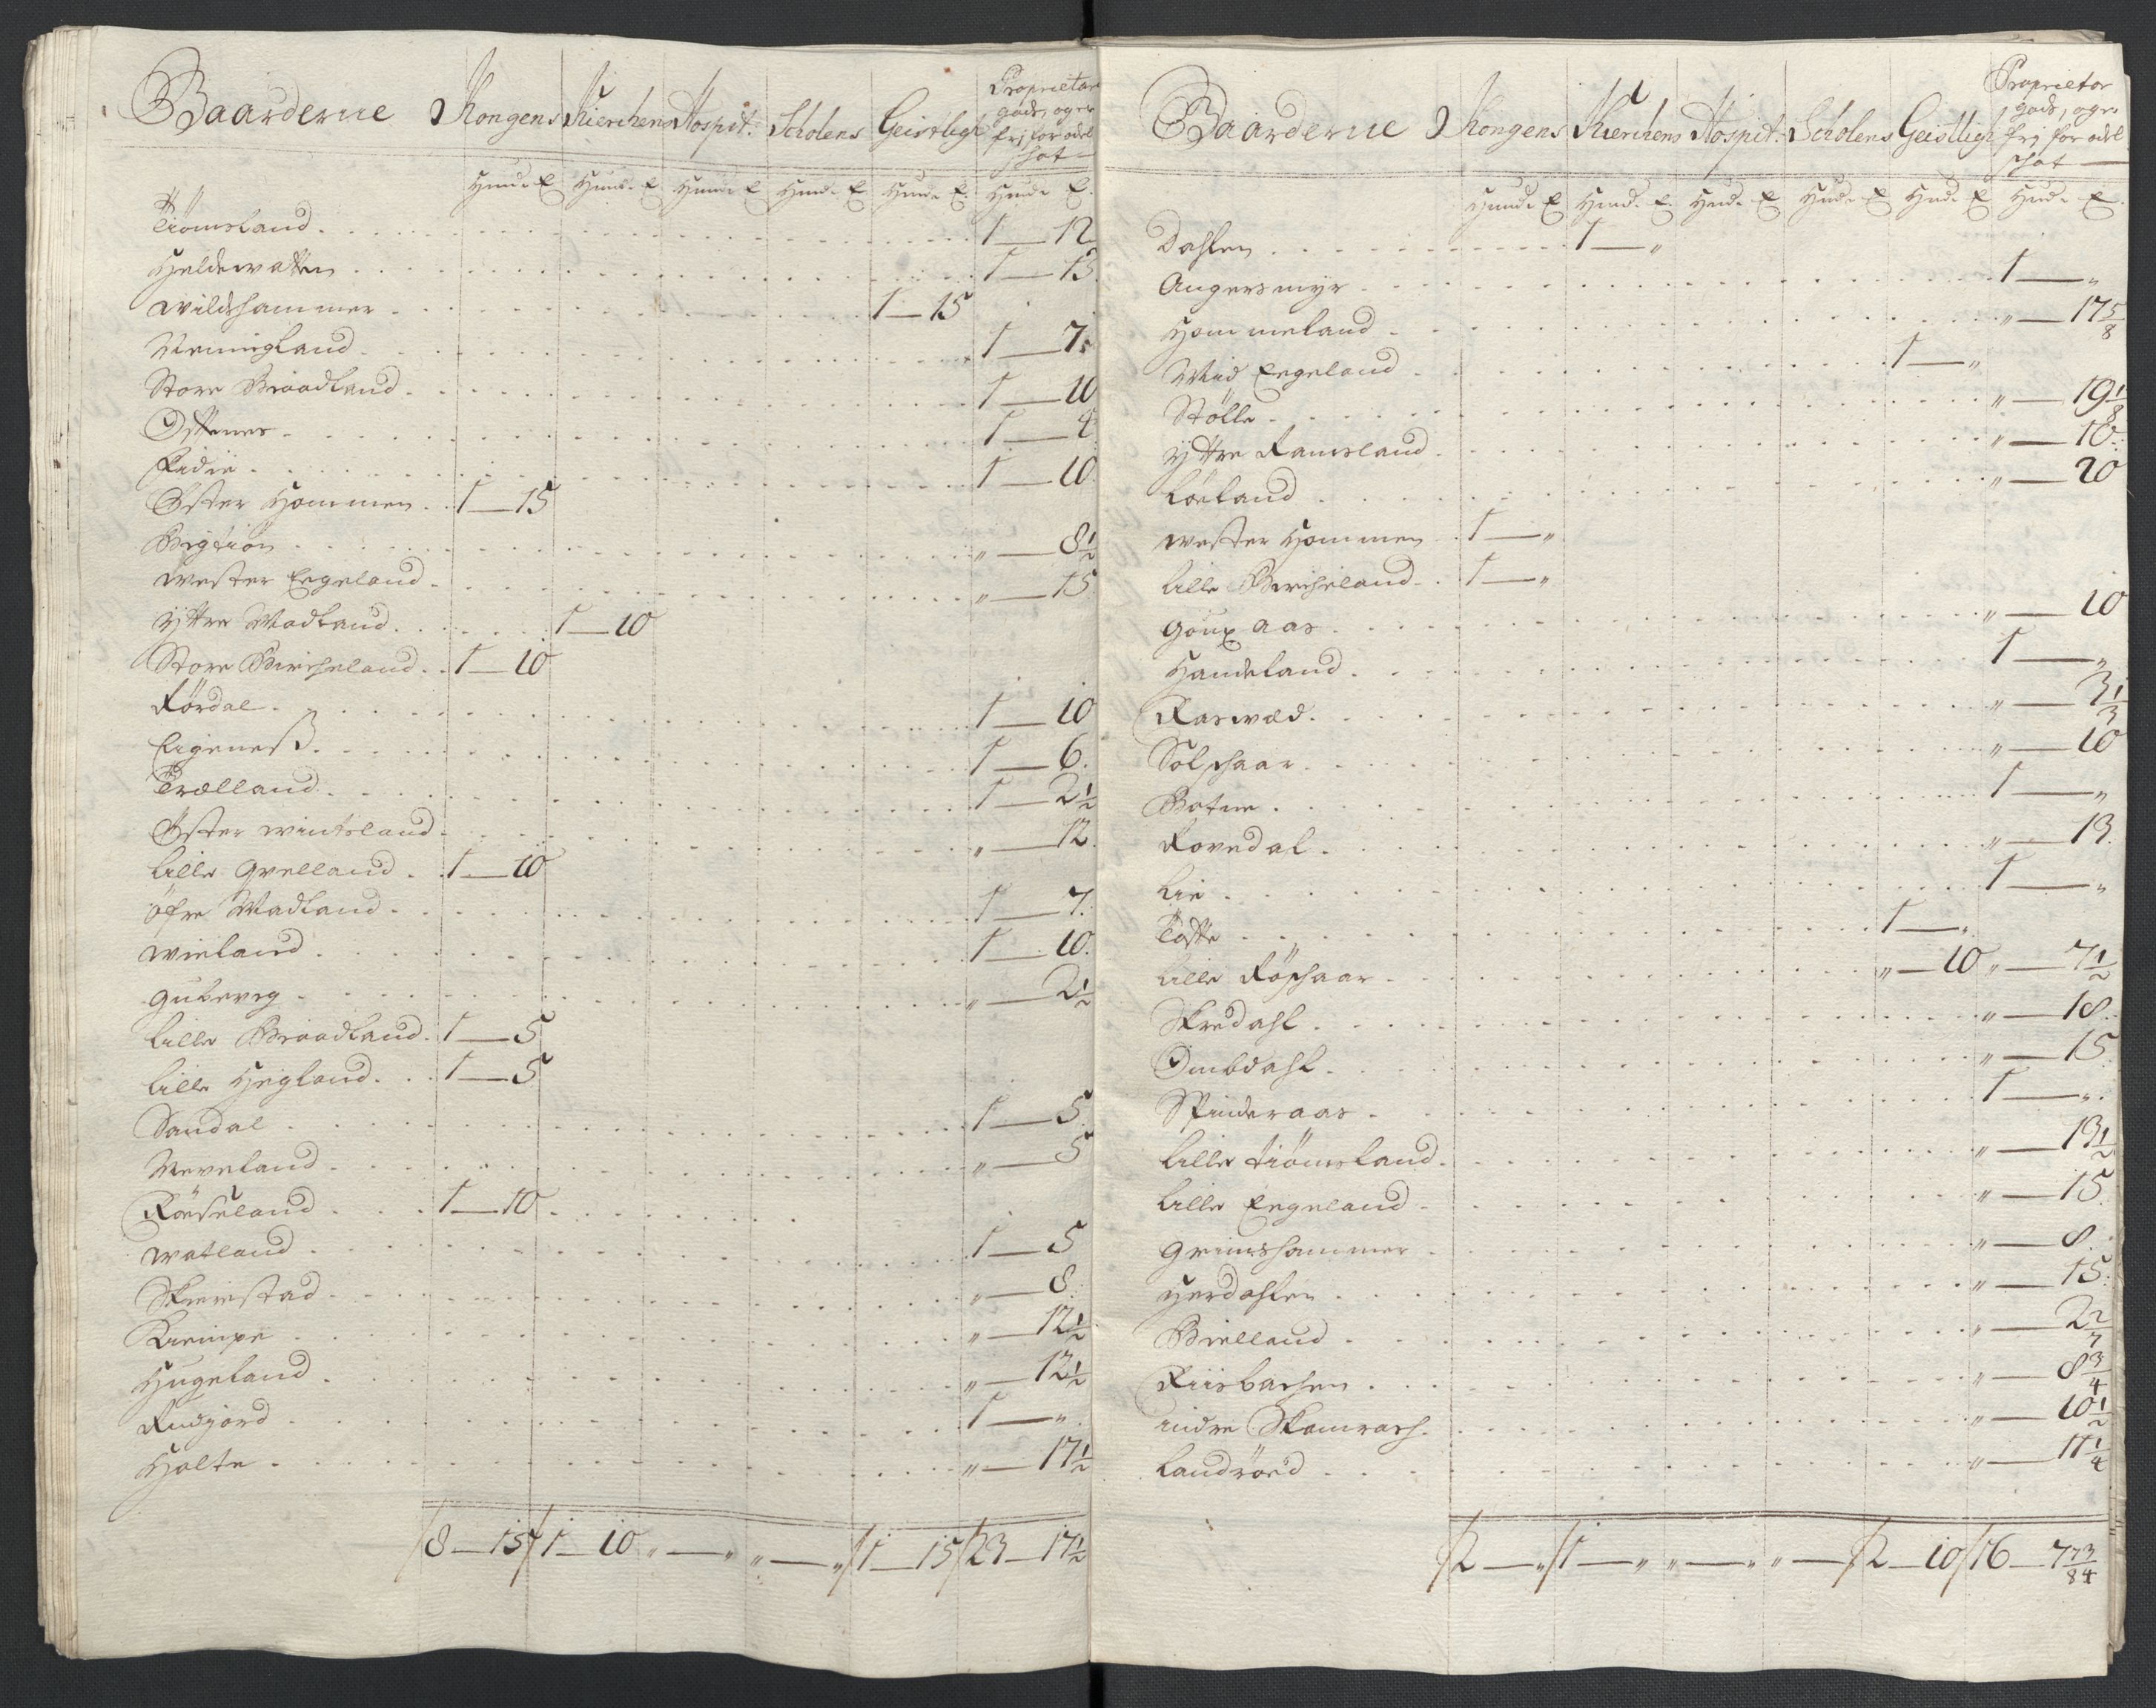 Gaarderne Kongens Kierchens Hospit: Scholens Geistlighe Proprietar
gods, oger
frj for odel
schat
Hude E Hude E Hude E Hude E Hude E Hude E
Tiomsland 1 — 12
Heldewatten 1 — 13
Wildhammer 1 — 15
Meningland 1 — 7
Store Braadland 1 — 10
Ottenes 1 — 4
Fidie 1 — 10
Øster Hommen 1 — 15
Bigtion „ — 8½
Wester Eegeland „ — 15
Yttre Modland 1 — 10
Store Bircheland 1 — 10
Rördal 1 — 10
Eigeness 1 — 6
Trælland 1 — 2½
Øster Wintsland „ — 12
Lille Qvelland 1 — 10
Öfre Madland 1 — 7
Wieland 1 — 10
Gulevig „ — 2½
Lille Braadland 1 — 5
Lille Hegland 1 — 5
Sandal 1 — 5
Meveland „ — 5
Røeseland 1 — 10
Watland 1 — 5
Skreistad „ — 8
Kiempe „ — 12½
Hugeland „ — 12½
Rudjord 1 — „
Holte „ — 17½
8 — 15 1 — 10 „ — „ „ — „ 1 — 15 23 — 17½
Gaarderne Kongens Kierchens Hospit: Scholens Geistligh Proprietar
gods, oger
frj for odel
schat
Hude E Hude E Hude E Hude E Hude E Hude E
Dahlen 1 — „
Angersmyr 1 — „
Hommeland „ — 17 5/8
Mid Eegeland 1 — „
Stölle „ — 19 1/8
Yttre Ramsland „ — 10
Löeland „ — 20
Wester Hommen 1 — „
Lille Bircheland 1 — „
Goupaas „ — 10
Handeland 1 — „
Raswad „ — 3 1/3
Solschaar „ — 10
Botne 1 — „
Rovedal „ — 13
Lie 1 — „
Tofte 1 — „
Lille Röschaar „ — 10 „ — 7½
Skredahl „ — 18
Ombdahl „ — 15
Skinderaas 1 — „
Lille Tiomsland „ — 13½
Lille Eegeland „ — 15
Grimshammer „ — 8
Herdahlen „ — 15
Bielland „ — 2 2/7
Riisbachen „ — 8 3/4
indre Skamrach „ — 10½
Landröed „ — 11 1/4
2 — „ 1 — „ „ — „ „ — 2 — 10 16 — 7 73/84